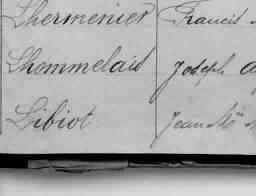 Lhermenier Francis
Lhommelais Joseph
Libiot Jean Mie